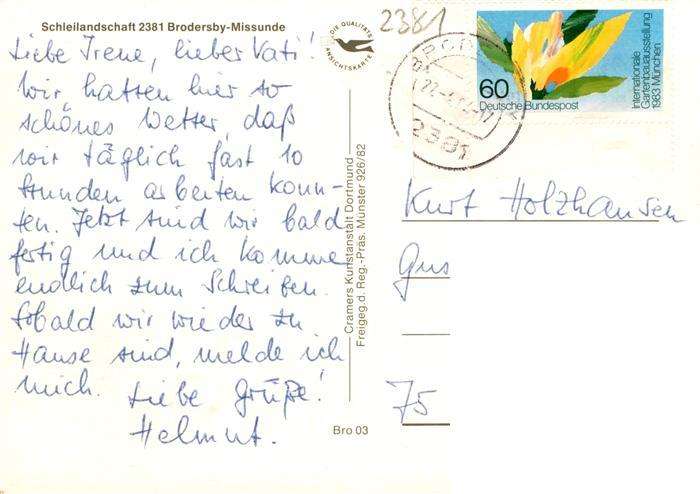 Schleilandschaft 2381 Brodersby-Missunde
Liebe Irene, lieber Vati!
Wir hatten hier so
schönes Wetter, daß
wir täglich fast 10
Stunden arbeiten konn-
ten. Jetzt sind wir bald
fertig und ich komme
endlich zum Schreiben.
Sobald wir wieder zu
Hause sind, melde ich
mich. Liebe Grüße!
Helmut.
DIE QUALITÄTS
ANSICHTSKARTE
Cramers Kunstanstalt Dortmund
Freigeg. d. Reg.-Präs. Münster 926/82
Bro 03
2381
2381
60
Deutsche Bundespost
Internationale
Gartenbauausstellung
1983 München
Kurt Holzhausen
Gus
75